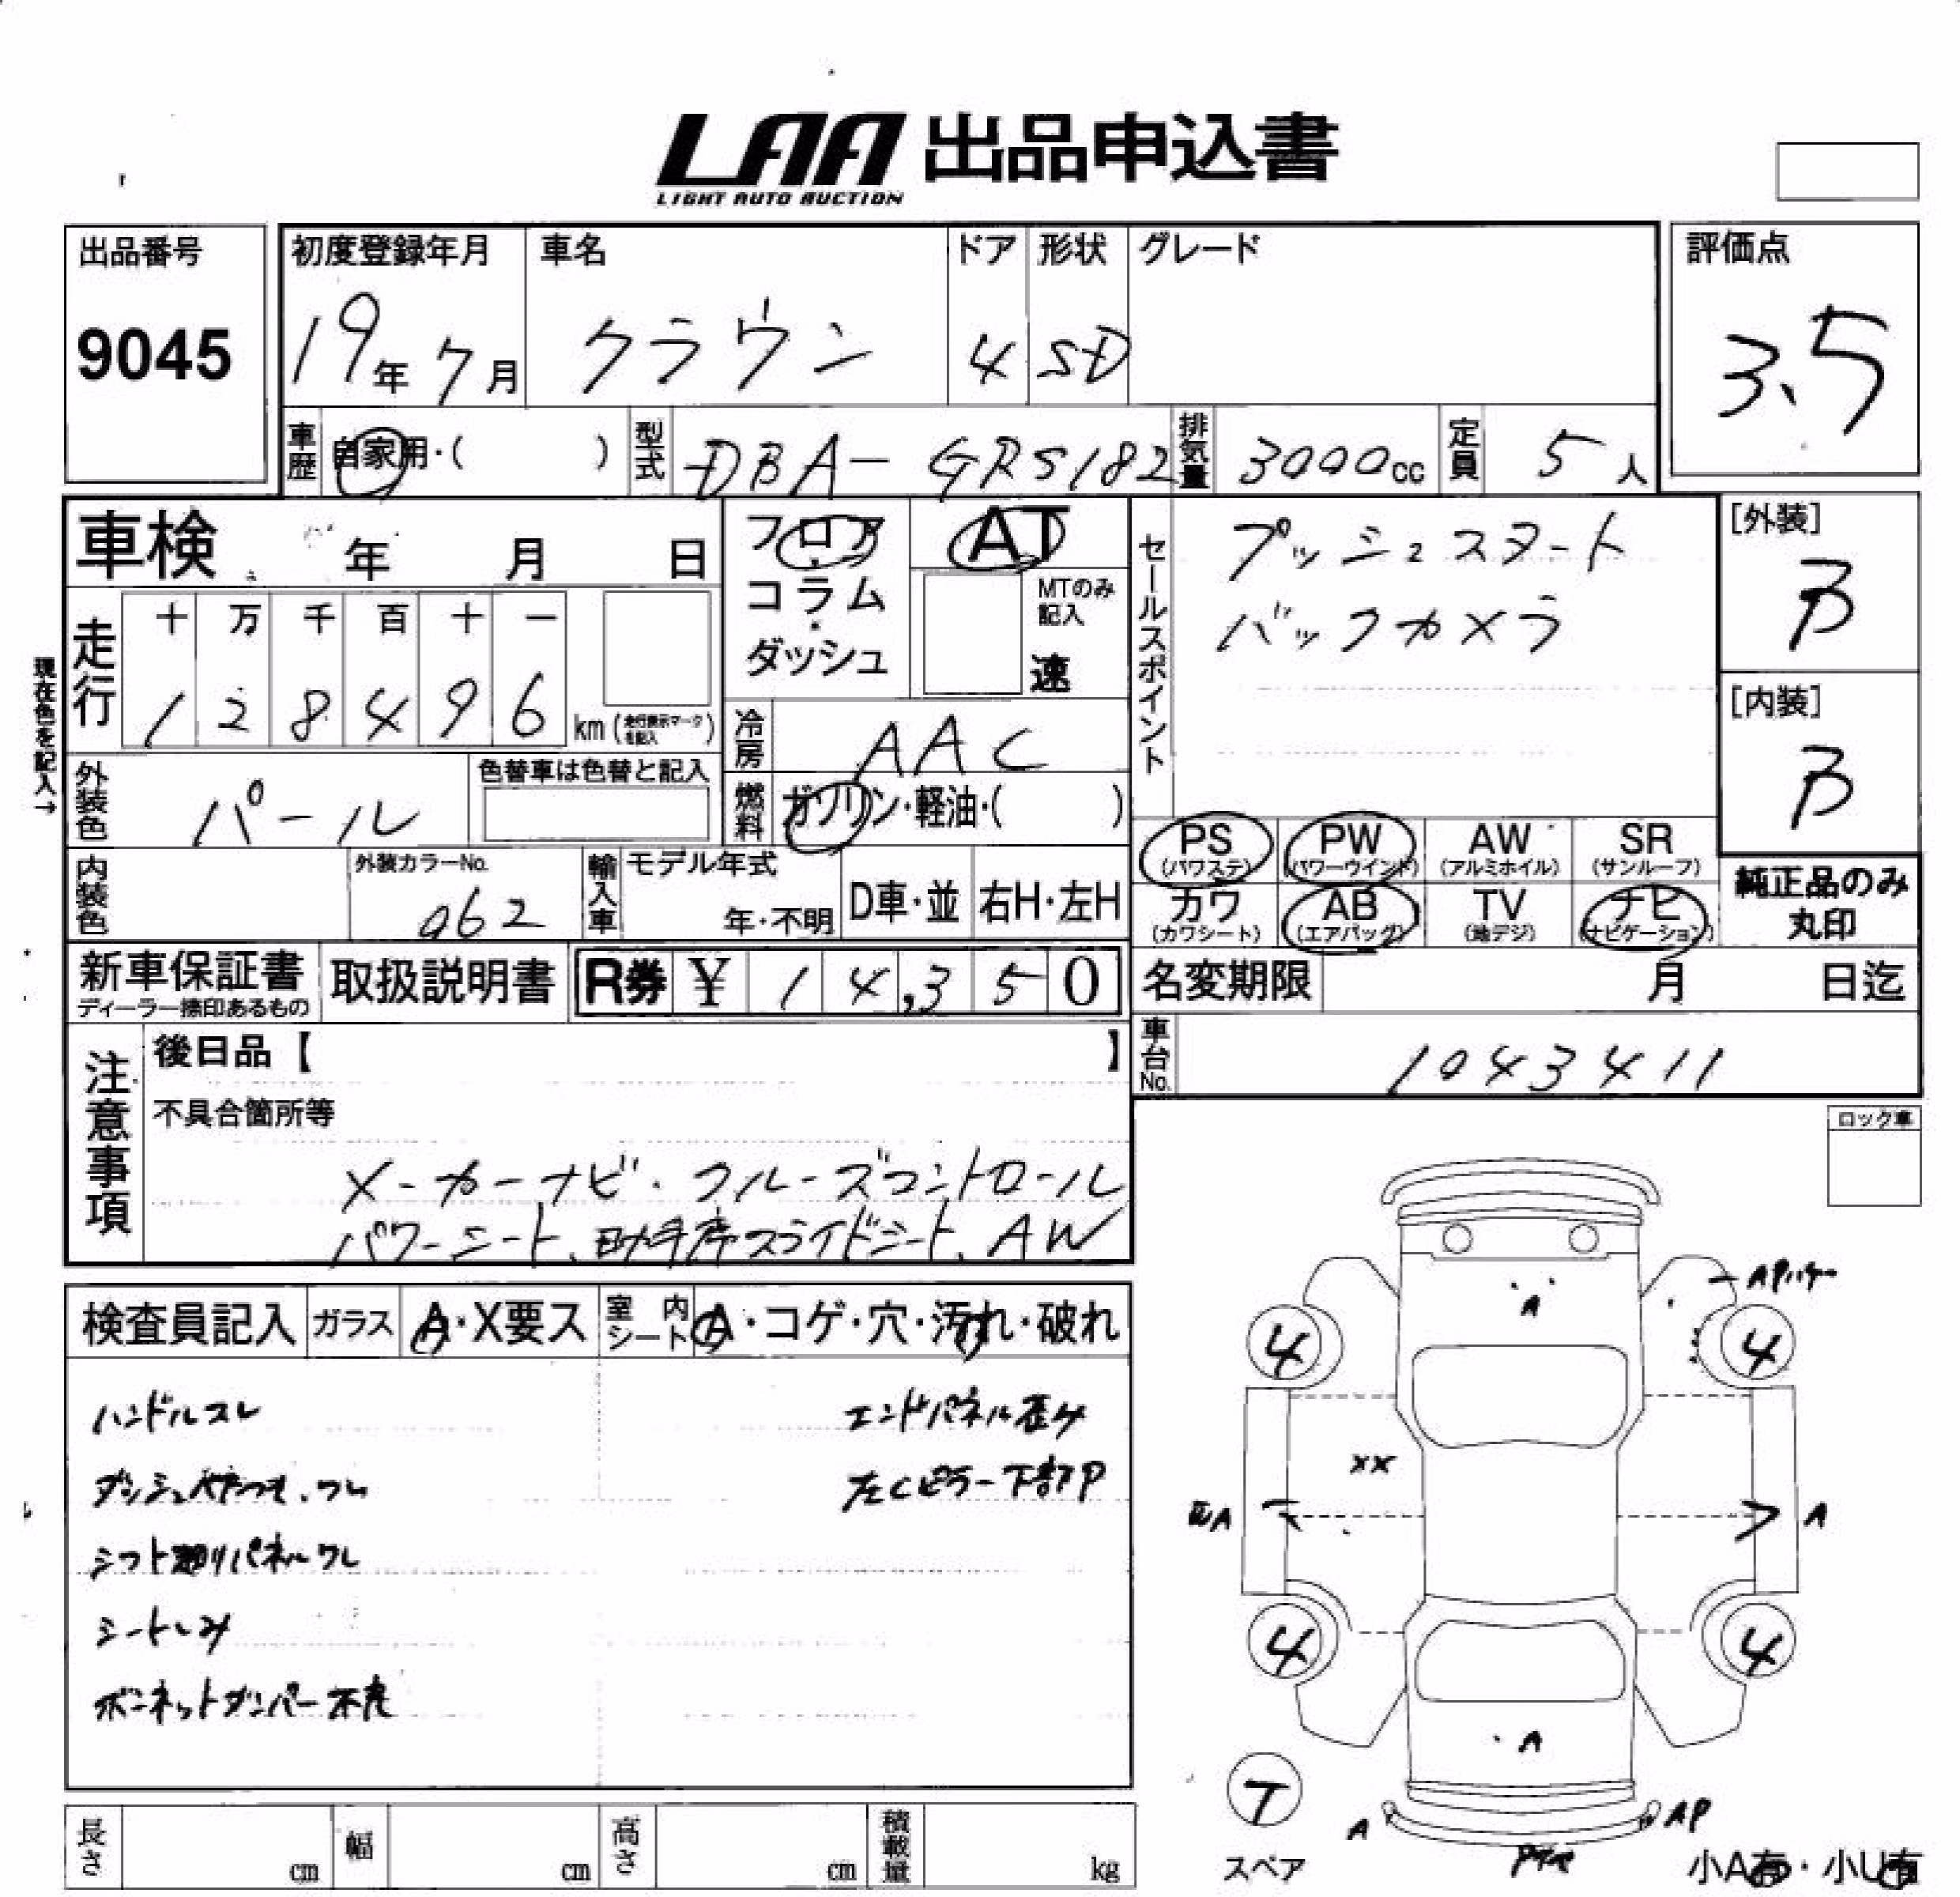 LAA 出品申込書
LIGHT AUTO AUCTION
出品番号
9045
初度登録年月
19年 7月
車名
クラウン
ドア
4
形状
SD
グレード
評価点
3.5
車歴
自家用・( )
型式
DBA-GRS182
排気量
3000cc
定員
5人
車検 年 月 日
フロア
コラム
ダッシュ
AT
MTのみ
記入
速
現在色を記入→
走行
十 万 千 百 十 一
1 2 8 4 9 6
km (走行表示マークを記入)
冷房
AAC
外装色
パール
色替車は色替と記入
燃料
ガソリン・軽油・( )
内装色
外装カラーNo.
062
輸入車
モデル年式
年・不明
D車・並
右H・左H
セールスポイント
プッシュスタート
バックカメラ
[外装]
B
[内装]
B
PS
(パワステ)
PW
(パワーウインド)
AW
(アルミホイル)
SR
(サンルーフ)
カワ
(カワシート)
AB
(エアバッグ)
TV
(地デジ)
ナビ
(ナビゲーション)
純正品のみ
丸印
新車保証書
ディーラー捺印あるもの
取扱説明書
R券 ¥ 14,350
名変期限 月 日迄
車台No.
1043411
注意事項
後日品【 】
不具合箇所等
メーカーナビ・クルーズコントロール
パワーシート、助手席スライドシート、AW
ロック車
検査員記入
ガラス
A・X要ス
室内
シート
A・コゲ・穴・汚れ・破れ
ハンドルスレ
シフト廻りパネルワレ
シートしみ
ボンネットダンパー不良
エンドパネル歪み
左Cピラー下部P
A
4
4
XX
A
A
4
4
A
7
スペア
A
AP
小A有・小U有
長さ cm
幅 cm
高さ cm
積載量 kg